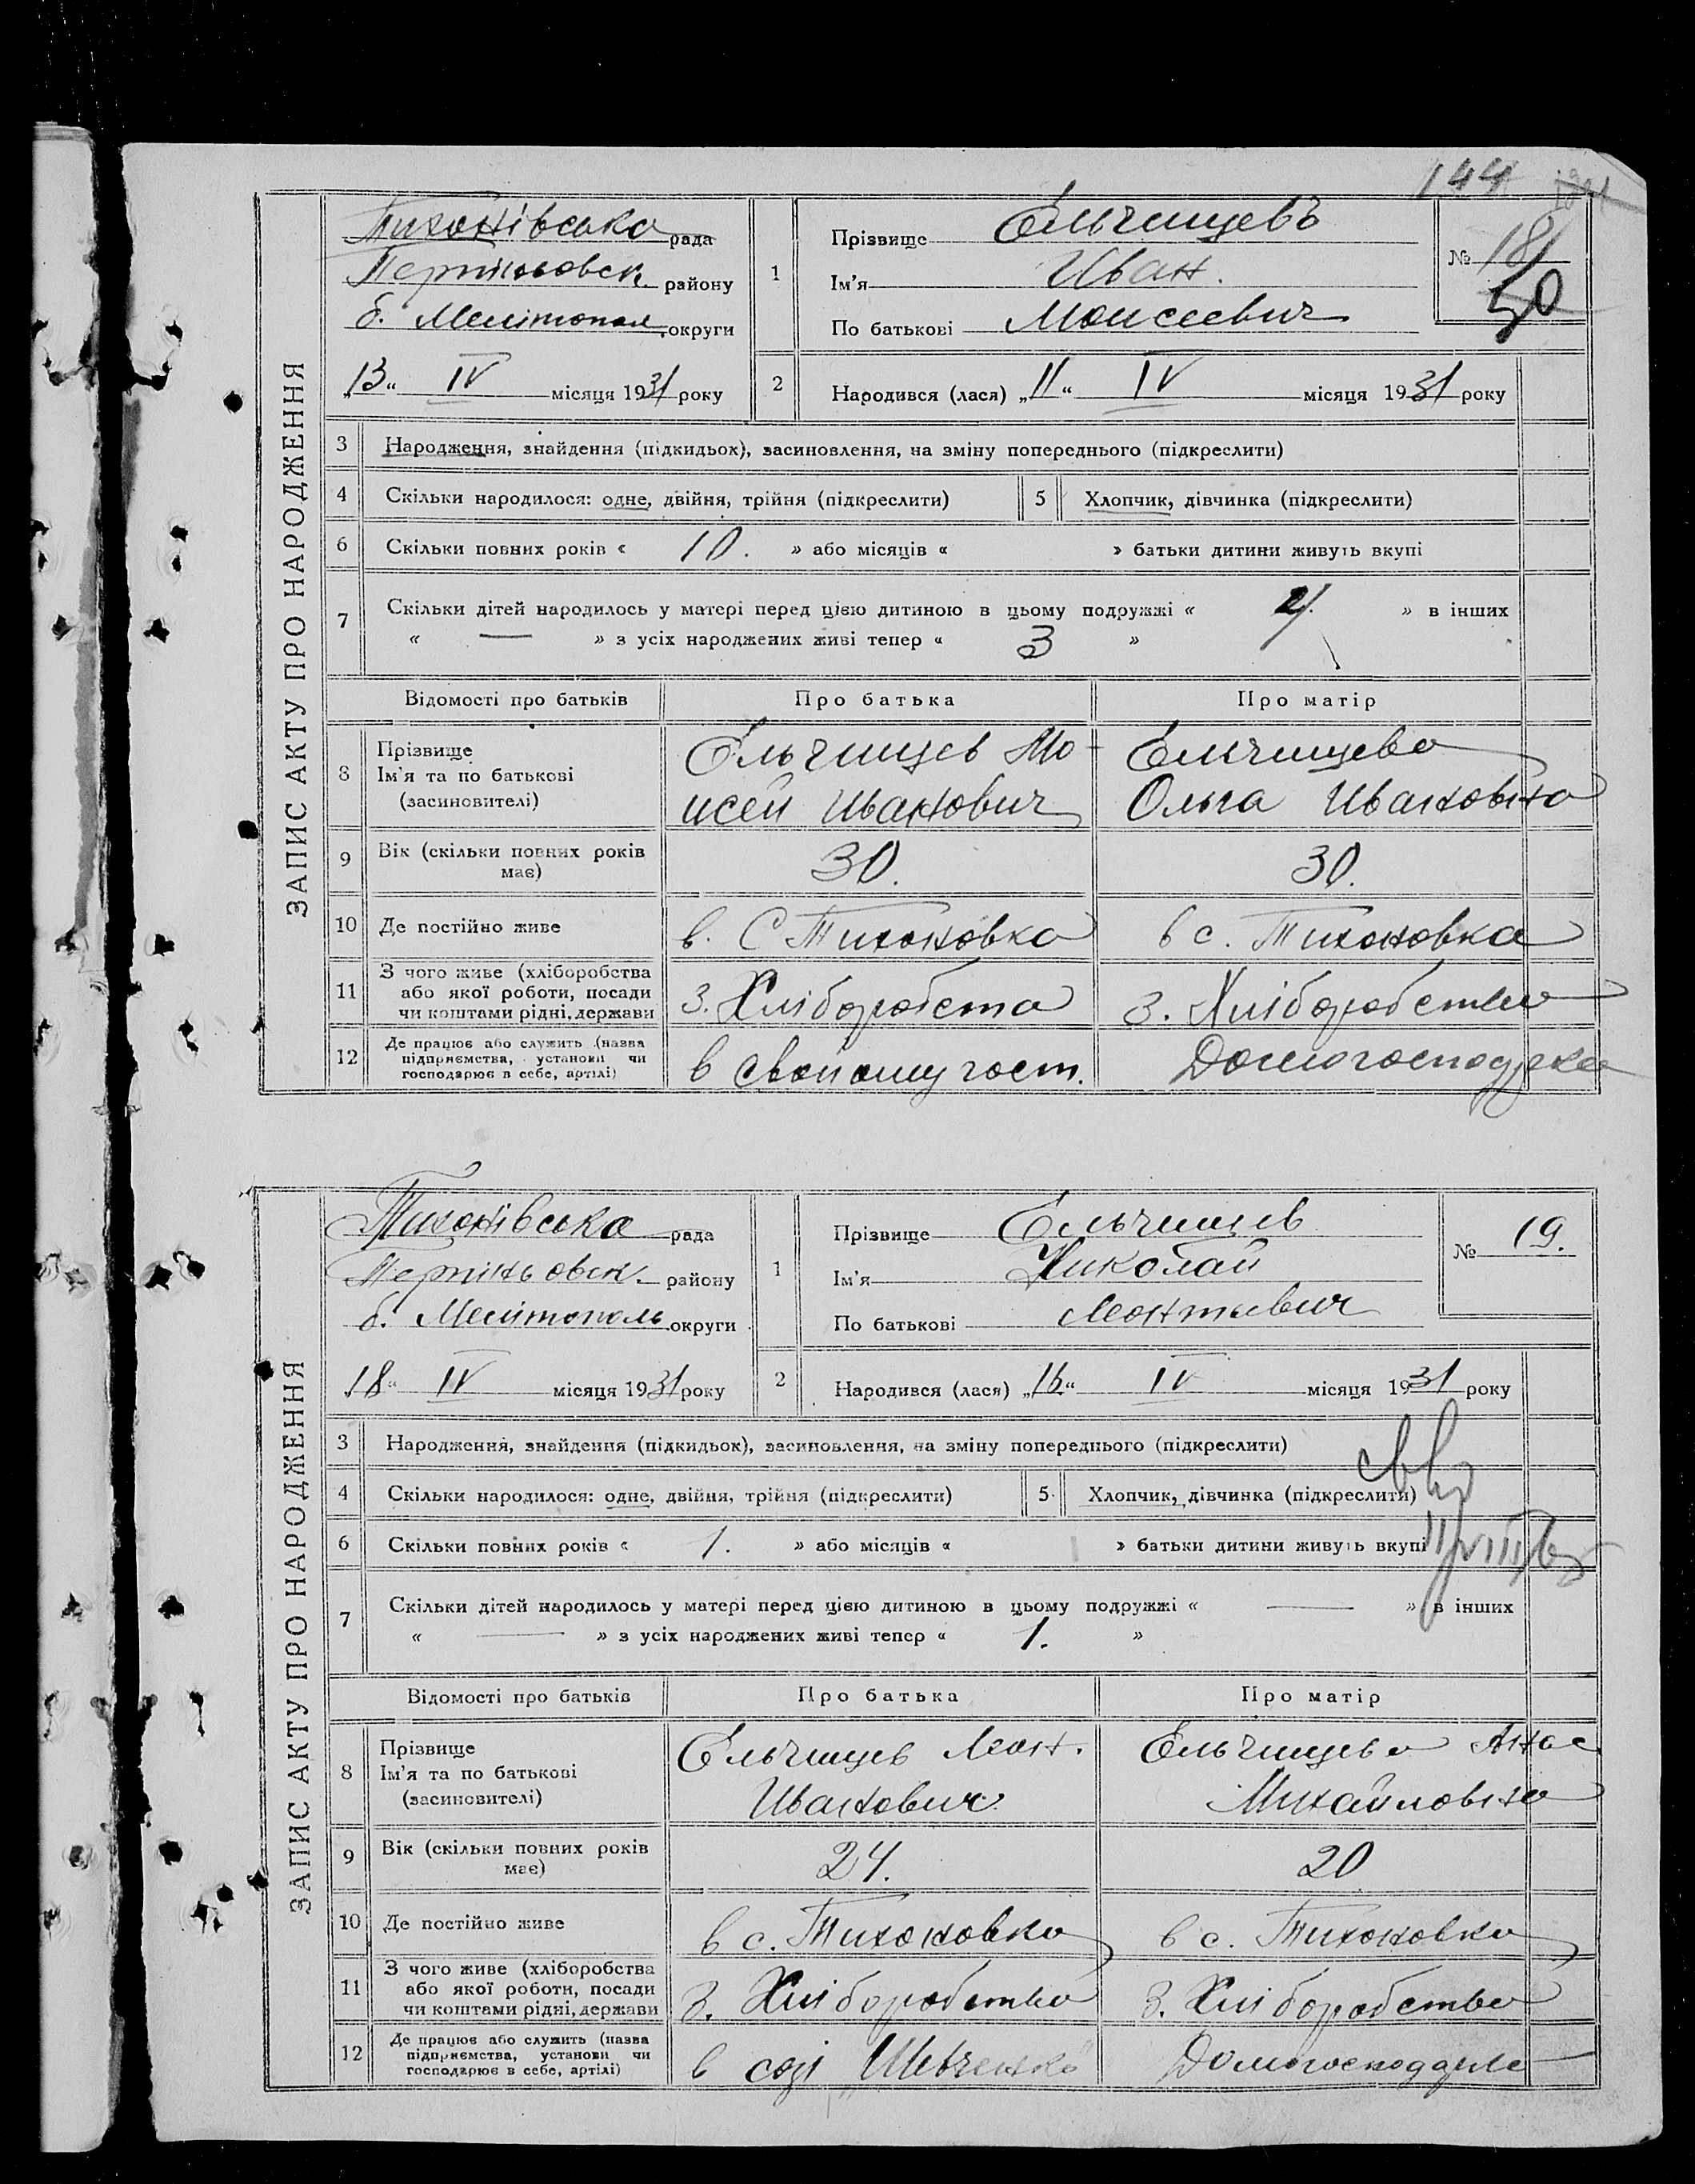 144
ЗАПИС АКТУ ПРО НАРОДЖЕННЯ
Тихонівська рада
района району
б. Мелітопол. округи
„13“ IV місяця 1931 року
1
Прізвище Ельчищевъ
Ім'я Иван.
По батькові Моисеевич
№ 18
50
2 Народився (лася) „11“ IV місяця 1931 року
3 Народження, знайдення (підкидьох), засиновлення, на зміну попереднього (підкреслити)
4 Скільки народилося: одне, двійня, трійня (підкреслити) 5 Хлопчик, дівчинка (підкреслити)
6 Скільки повних років « 10. » або місяців « » батьки дитини живуть вкупі
7 Скільки дітей народилось у матері перед цією дитиною в цьому подружжі « » в інших
« — » з усіх народжених живі тепер « 3 »
Відомості про батьків Про батька Про матір
8 Прізвище
Ім'я та по батькові
(засиновителі)
Ельчищев Мо-
исей Иванович
Ельчищева
Ольга Ивановна
9 Вік (скільки повних років
має)
30. 30.
10 Де постійно живе в. С Тихоновка в с. Тихоновка
11 З чого живе (хліборобства
або якої роботи, посади
чи коштами рідні, держави
З. Хліборобста З. Хліборобства
12 Де працює або служить (назва
підприємства, установи чи
господарює в себе, артілі)
в свойому гост. Домогосподрка
ЗАПИС АКТУ ПРО НАРОДЖЕННЯ
Тихонівська рада
району
б. Мелітополь округи
„18“ IV місяця 1931 року
1
Прізвище Ельчищев
Ім'я Николай
По батькові Леонтьевич
№ 19.
2 Народився (лася) „16“ IV місяця 1931 року
3 Народження, знайдення (підкидьок), засиновлення, на зміну попереднього (підкреслити)
4 Скільки народилося: одне, двійня, трійня (підкреслити) 5 Хлопчик, дівчинка (підкреслити)
6 Скільки повних років « 1. » або місяців « » батьки дитини живуть вкупі
7 Скільки дітей народилось у матері перед цією дитиною в цьому подружжі « — » в інших
« — » з усіх народжених живі тепер « 1. »
Відомості про батьків Про батька Про матір
8 Прізвище
Ім'я та по батькові
(засиновителі)
Ельчищев Леон.
Иванович
Ельчищева Анас
Михайловна
9 Вік (скільки повних років
має)
24. 20
10 Де постійно живе в с. Тихоновка в с. Тихоновка
11 З чого живе (хліборобства
або якої роботи, посади
чи коштами рідні, держави
З. Хліборобства З. Хліборобства
12 Де працює або служить (назва
підприємства, установи чи
господарює в себе, артілі)
в созі „Шевченко“